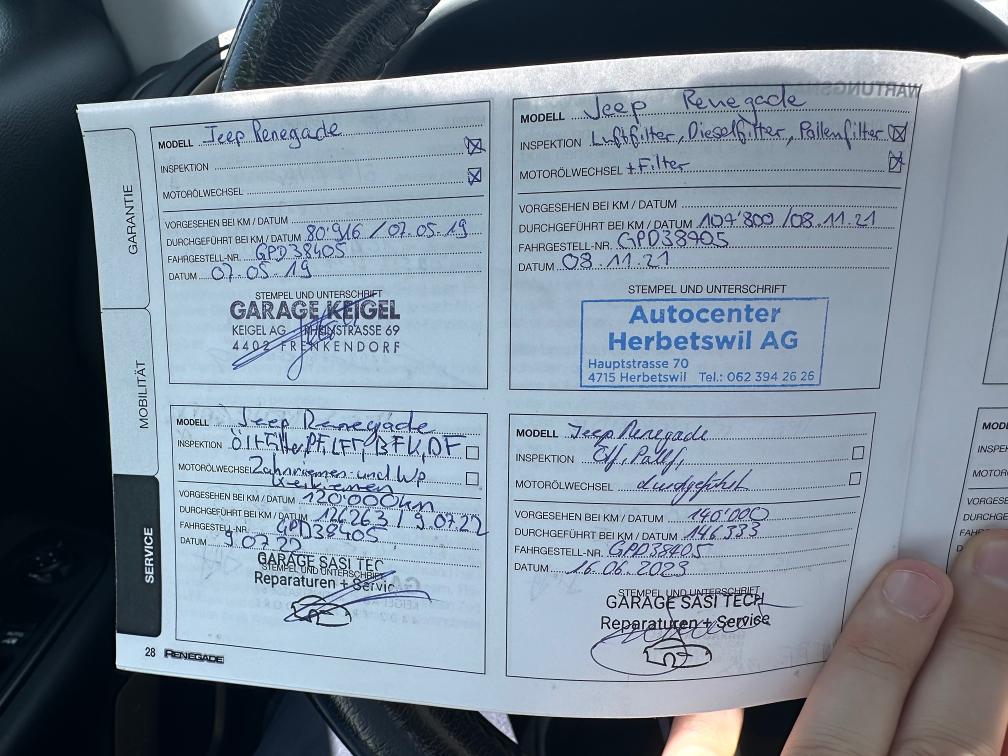 GARANTIE
MOBILITÄT
SERVICE
MODELL Jeep Renegade
INSPEKTION
MOTORÖLWECHSEL
VORGESEHEN BEI KM / DATUM
DURCHGEFÜHRT BEI KM / DATUM 80'916 / 07.05.19
FAHRGESTELL-NR. GPD38405
DATUM 07.05.19
STEMPEL UND UNTERSCHRIFT
GARAGE KEIGEL
KEIGEL AG RHEINSTRASSE 69
4402 FRENKENDORF
WARTUNGS
MODELL Jeep Renegade
INSPEKTION Luftfilter, Dieselfilter, Pollenfilter
MOTORÖLWECHSEL + Filter
VORGESEHEN BEI KM / DATUM
DURCHGEFÜHRT BEI KM / DATUM 107'800 / 08.11.21
FAHRGESTELL-NR. GPD38405
DATUM 08.11.21
STEMPEL UND UNTERSCHRIFT
Autocenter
Herbetswil AG
Hauptstrasse 70
4715 Herbetswil Tel.: 062 394 26 26
MODELL Jeep Renegade
INSPEKTION Öl+Filter, PF, LFF, BFK, DF
MOTORÖLWECHSEL Zahnriemen und Wp
VORGESEHEN BEI KM / DATUM 120'000km
DURCHGEFÜHRT BEI KM / DATUM 126263 / 9.07.22
FAHRGESTELL-NR. GPD38405
DATUM 9.07.22
GARAGE SASI TEC
STEMPEL UND UNTERSCHRIFT
Reparaturen + Servic
MODELL Jeep Renegade
INSPEKTION
MOTORÖLWECHSEL durchgeführt
VORGESEHEN BEI KM / DATUM 140'000
DURCHGEFÜHRT BEI KM / DATUM 146'333
FAHRGESTELL-NR. GPD38405
DATUM 16.06.2023
STEMPEL UND UNTERSCHRIFT
GARAGE SASI TECH
Reparaturen + Service
28 RENEGADE
MOD
INSPE
MOTO
VORGES
DURC